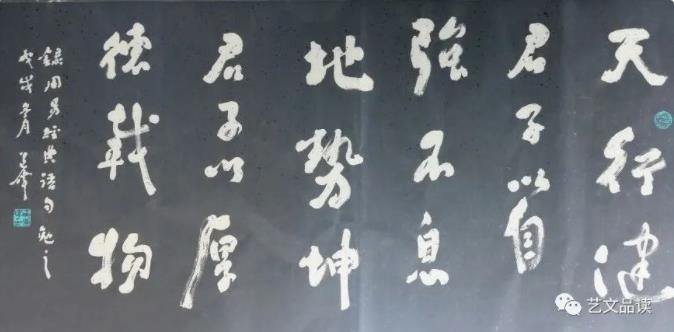 天行健
君子以自
強不息
地勢坤
君子以厚
德載物
錄周易經典語句勉之
戊戌冬月
艺文品读